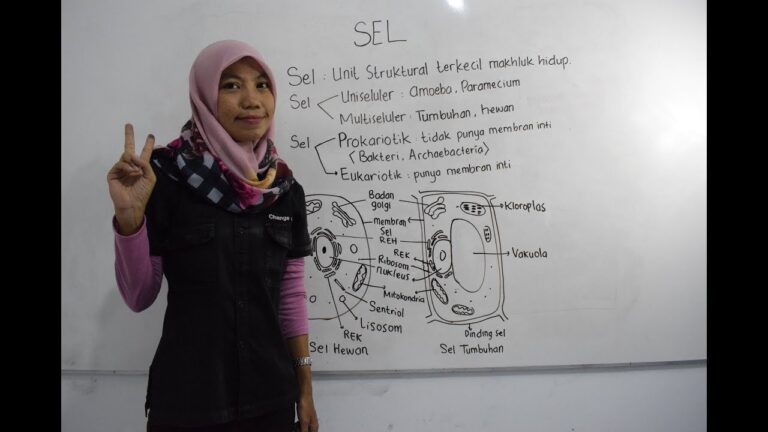 SEL
Sel : Unit Struktural terkecil makhluk hidup.
Sel
Uniseluler : Amoeba, Paramecium
Multiseluler : Tumbuhan, Hewan
Sel
Prokariotik : tidak punya membran inti
(Bakteri, Archaebacteria)
Eukariotik : punya membran inti
Badan
golgi
membran
Sel
REH
REK
Ribosom
nukleus
Mitokondria
Sentriol
Lisosom
REK
Sel Hewan
Kloroplas
Vakuola
Dinding sel
Sel Tumbuhan
Change